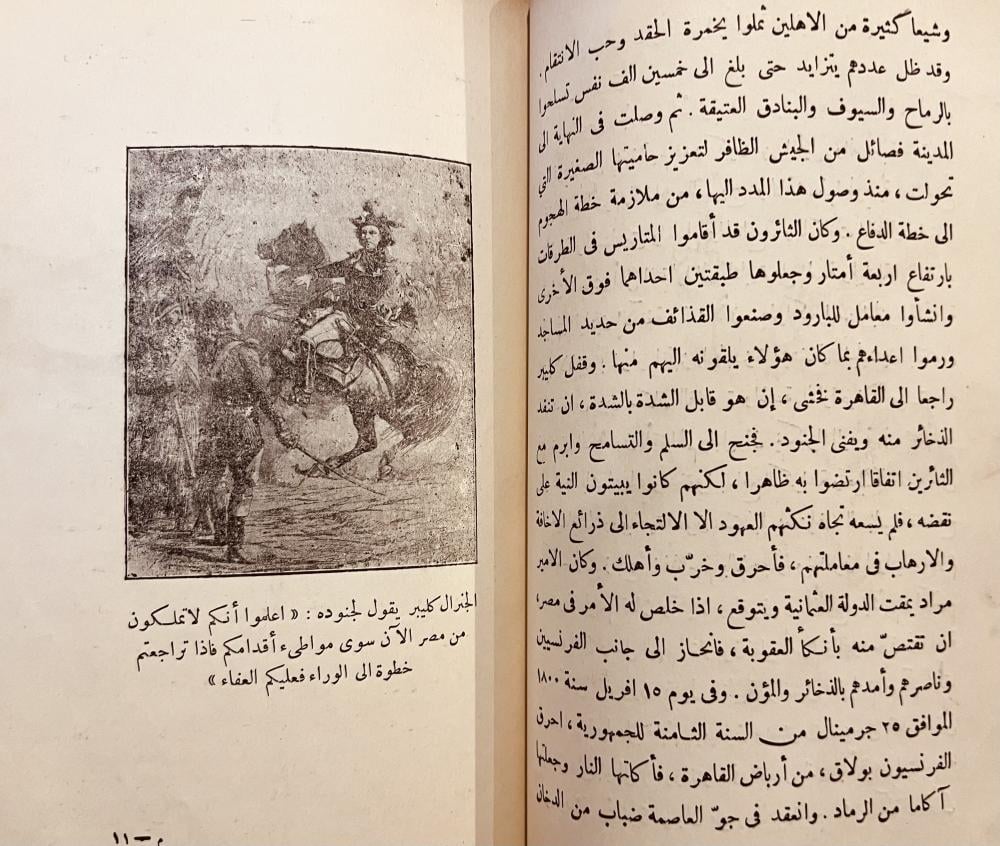 وشيعا كثيرة من الاهلين ثملوا بخمرة الحقد وحب الانتقام .
وقد ظل عددهم يتزايد حتى بلغ الى خمسين الف نفس تسلحوا
بالرماح والسيوف والبنادق العتيقة . ثم وصلت فى النهاية الى
المدينة فصائل من الجيش الظافر لتعزيز حاميتها الصغيرة التى
تحولت ، منذ وصول هذا المدد اليها ، من ملازمة خطة الهجوم
الى خطة الدفاع . وكان الثائرون قد أقاموا المتاريس فى الطرقات
بارتفاع اربعة أمتار وجعلوها طبقتين احداهما فوق الأخرى
وانشأوا معامل للبارود وصنعوا القذائف من حديد المساجد
ورموا اعداءهم بما كان هؤلاء يلقونه اليهم منها . وقفل كليبر
راجعا الى القاهرة فخشى ، إن هو قابل الشدة بالشدة ، ان تنفد
الذخائر منه ويفنى الجنود . فجنح الى السلم والتسامح وابرم مع
الثائرين اتفاقا ارتضوا به ظاهرا ، لكنهم كانوا يبيتون النية على
نقضه ، فلم يسعه تجاه نكثهم العهود الا الالتجاء الى ذرائع الاخافة
والارهاب فى معاملتهم ، فأحرق وخرّب وأهلك . وكان الامير
مراد يمقت الدولة العثمانية ويتوقع ، اذا خلص له الأمر فى مصر ،
ان تقتصّ منه بأنكأ العقوبة ، فانحاز الى جانب الفرنسيين
وناصرهم وأمدهم بالذخائر والمؤن . وفى يوم ١٥ افريل سنة ١٨٠٠
الموافق ٢٥ جرمينال من السنة الثامنة للجمهورية ، احرق
الفرنسيون بولاق ، من أرباض القاهرة ، فأكلتها النار وجعلتها
آكاما من الرماد . وانعقد فى جوّ العاصمة ضباب من الدخان
الجنرال كليبر يقول لجنوده : « اعلموا أنكم لا تملكون
من مصر الآن سوى مواطىء أقدامكم فاذا تراجعتم
خطوة الى الوراء فعليكم العفاء »
م — ١١